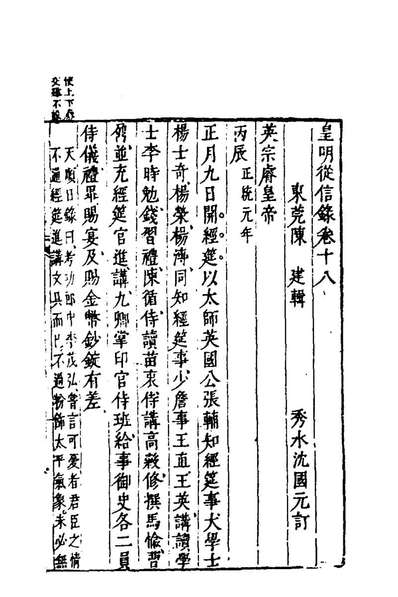 皇明從信錄卷十八
東莞陳 建輯 秀水沈國元訂
英宗睿皇帝
丙辰 正統元年
正月九日開經筵以太師英國公張輔知經筵事大學士
楊士奇楊榮楊溥同知經筵事少詹事王直王英講讀學
士李時勉錢習禮陳循侍讀苗衷侍講高穀修撰馬愉曹
鶚並充經筵官進講九卿掌印官侍班給事御史各二員
侍儀禮畢賜宴及賜金幣鈔錠有差
天順日錄曰考功郎中李茂弘嘗言可憂者君臣之情
不通經筵進講文具而已不過粉飾太平氣象未必無
上下
交